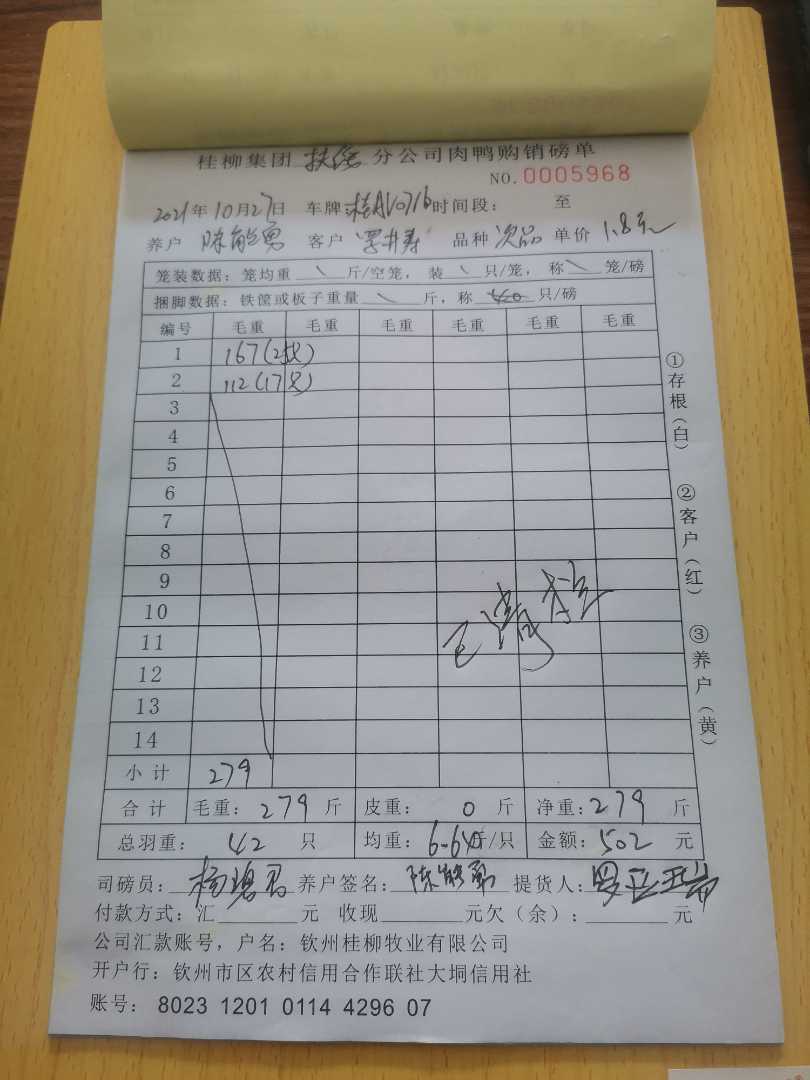 桂柳集团 扶绥 分公司肉鸭购销磅单
NO. 0005968
2021年10月27日 车牌 桂AV0716 时间段： 至
养户 陈能勇 客户 品种 次品 单价 1.8元
笼装数据：笼均重 \ 斤/空笼，装 \ 只/笼，称 \ 笼/磅
捆脚数据：铁筐或板子重量 \ 斤，称 只/磅
编号 毛重 毛重 毛重 毛重 毛重 毛重
1 167(25只)
2 112(17只)
3
4
5
6
7
8
9
10
11
12
13
14
小计 279
合计 毛重：279斤 皮重：0斤 净重：279斤
总羽重：42只 均重：6.64斤/只 金额：502元
司磅员： 养户签名：陈能勇 提货人：
付款方式：汇 元 收现 元欠（余）： 元
公司汇款账号，户名：钦州桂柳牧业有限公司
开户行：钦州市区农村信用合作联社大垌信用社
账号： 8023 1201 0114 4296 07
①存根（白）
②客户（红）
③养户（黄）